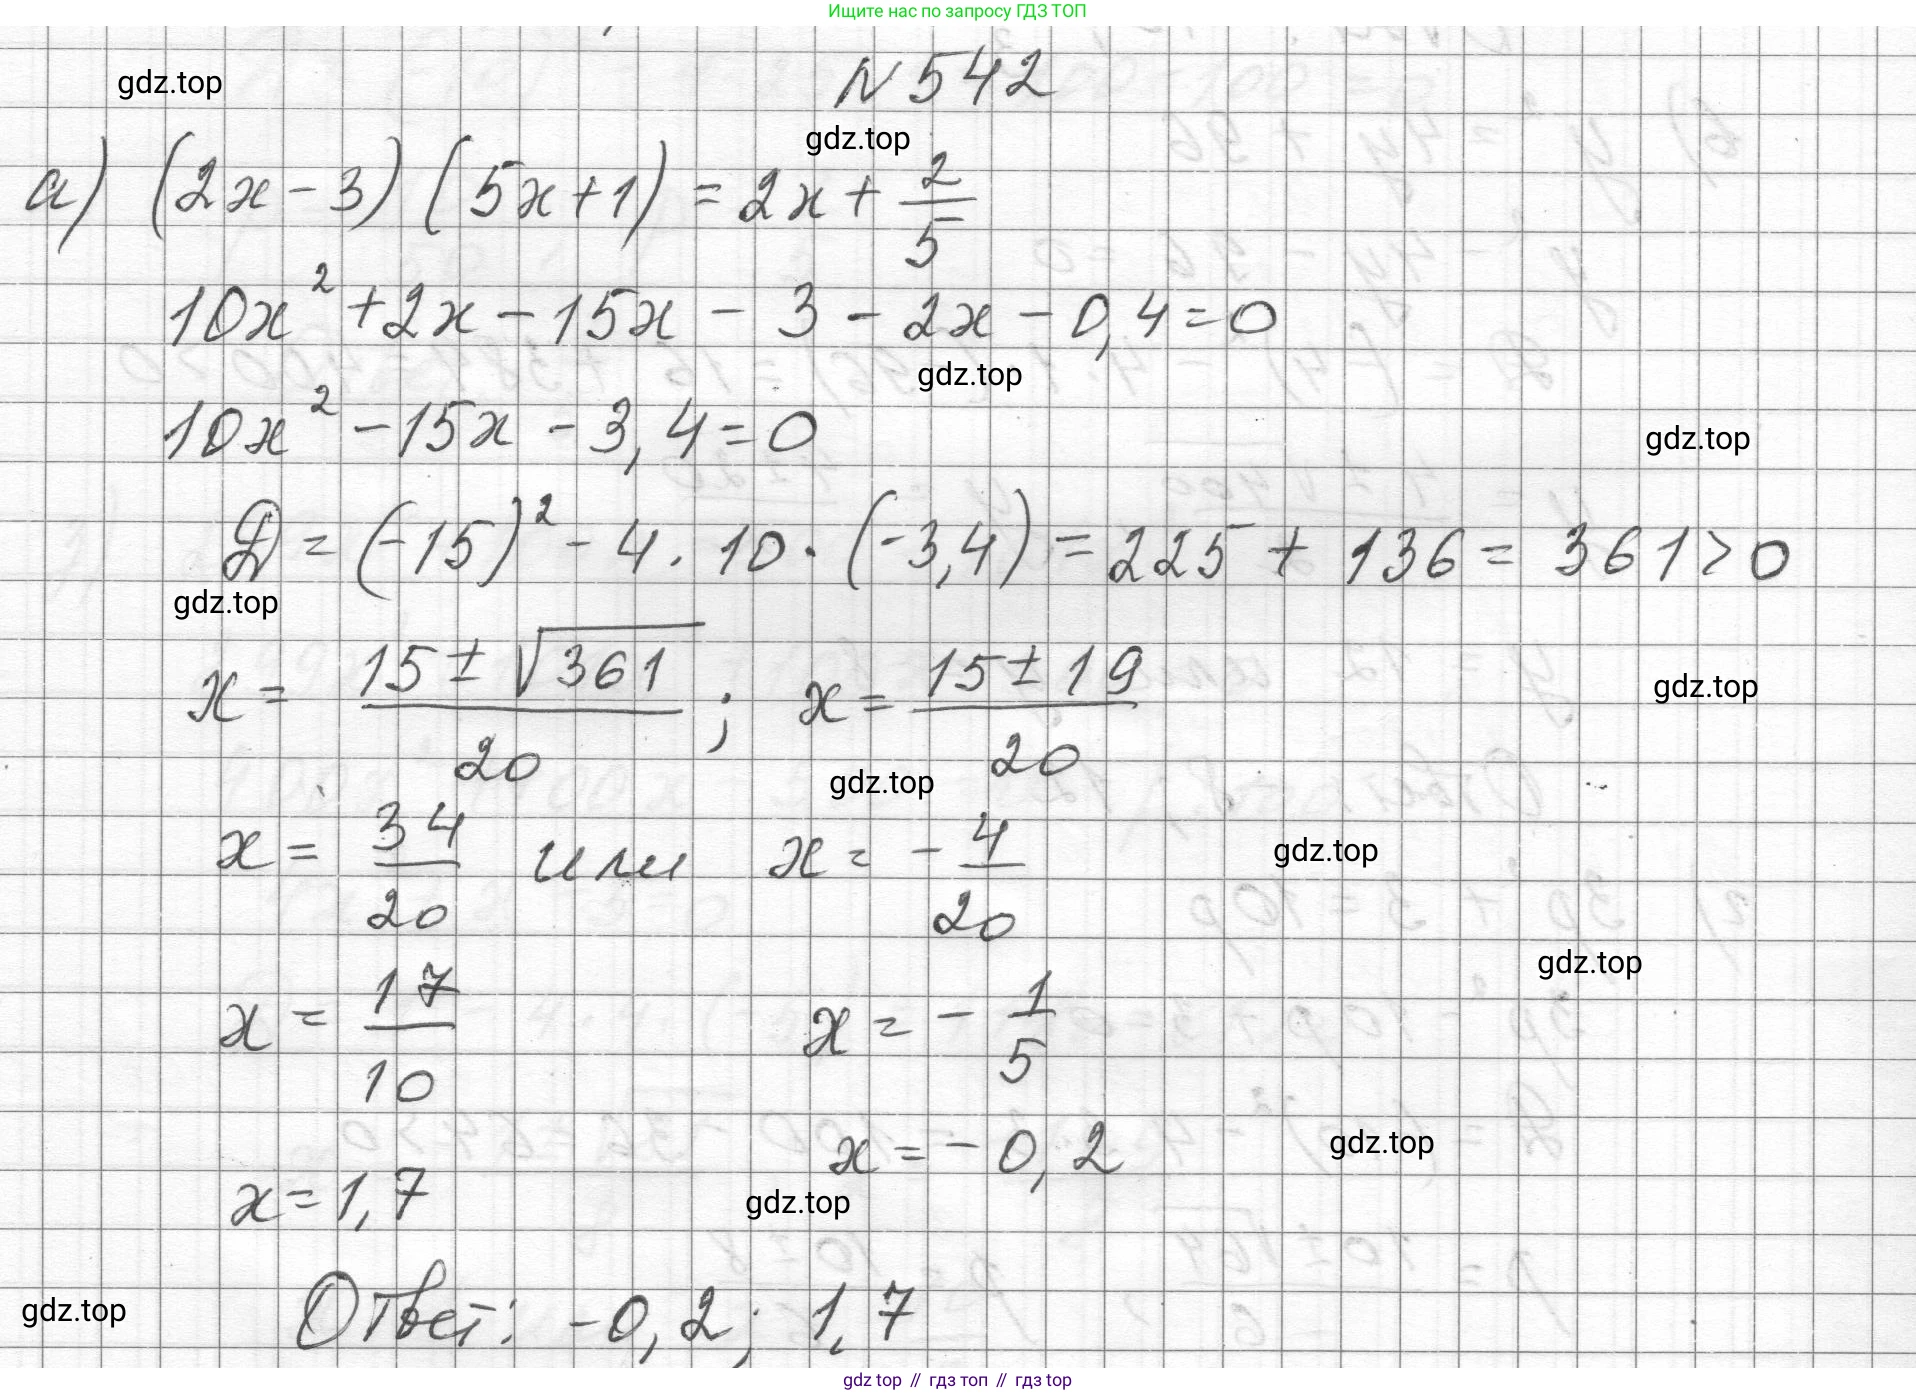 Ищите нас по запросу ГДЗ ТОП
N 542
gdz.top
gdz.top
а) (2x - 3) (5x + 1) = 2x + 2/5
10x² + 2x - 15x - 3 - 2x - 0,4 = 0
gdz.top
10x² - 15x - 3,4 = 0
gdz.top
D = (-15)² - 4 · 10 · (-3,4) = 225 + 136 = 361 > 0
gdz.top
x = (15 ± √361)/20 ; x = (15 ± 19)/20
gdz.top
gdz.top
x = 34/20 или x = - 4/20
gdz.top
gdz.top
x = 17/10 x = - 1/5
x = - 0,2
gdz.top
x = 1,7
gdz.top
Ответ: -0,2; 1,7
gdz.top
gdz top // гдз топ // гдз top